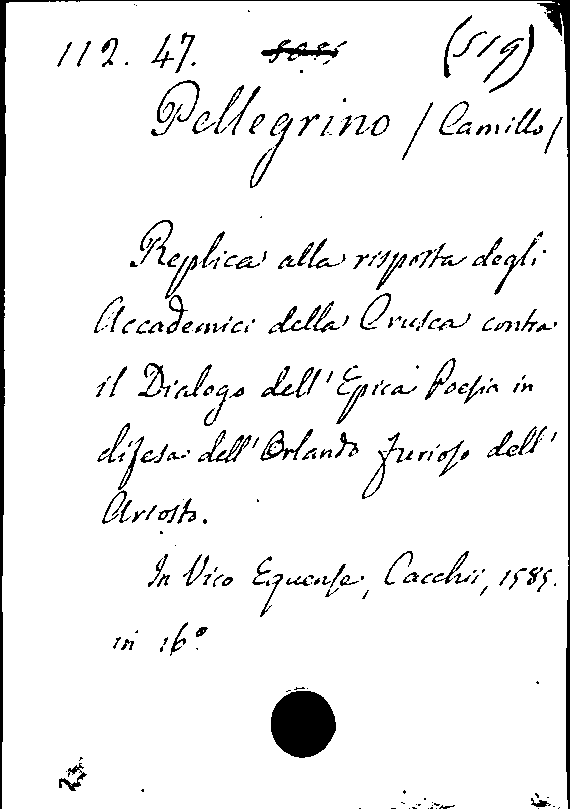 112. 47. (519)
Pellegrino / Camillo /
Replica alla risposta degli
Accademici della Crusca contra
il Dialogo dell' Epica Poesia in
difesa dell' Orlando furioso dell'
Ariosto.
In Vico Equense, Cacchii, 1585.
in 16°